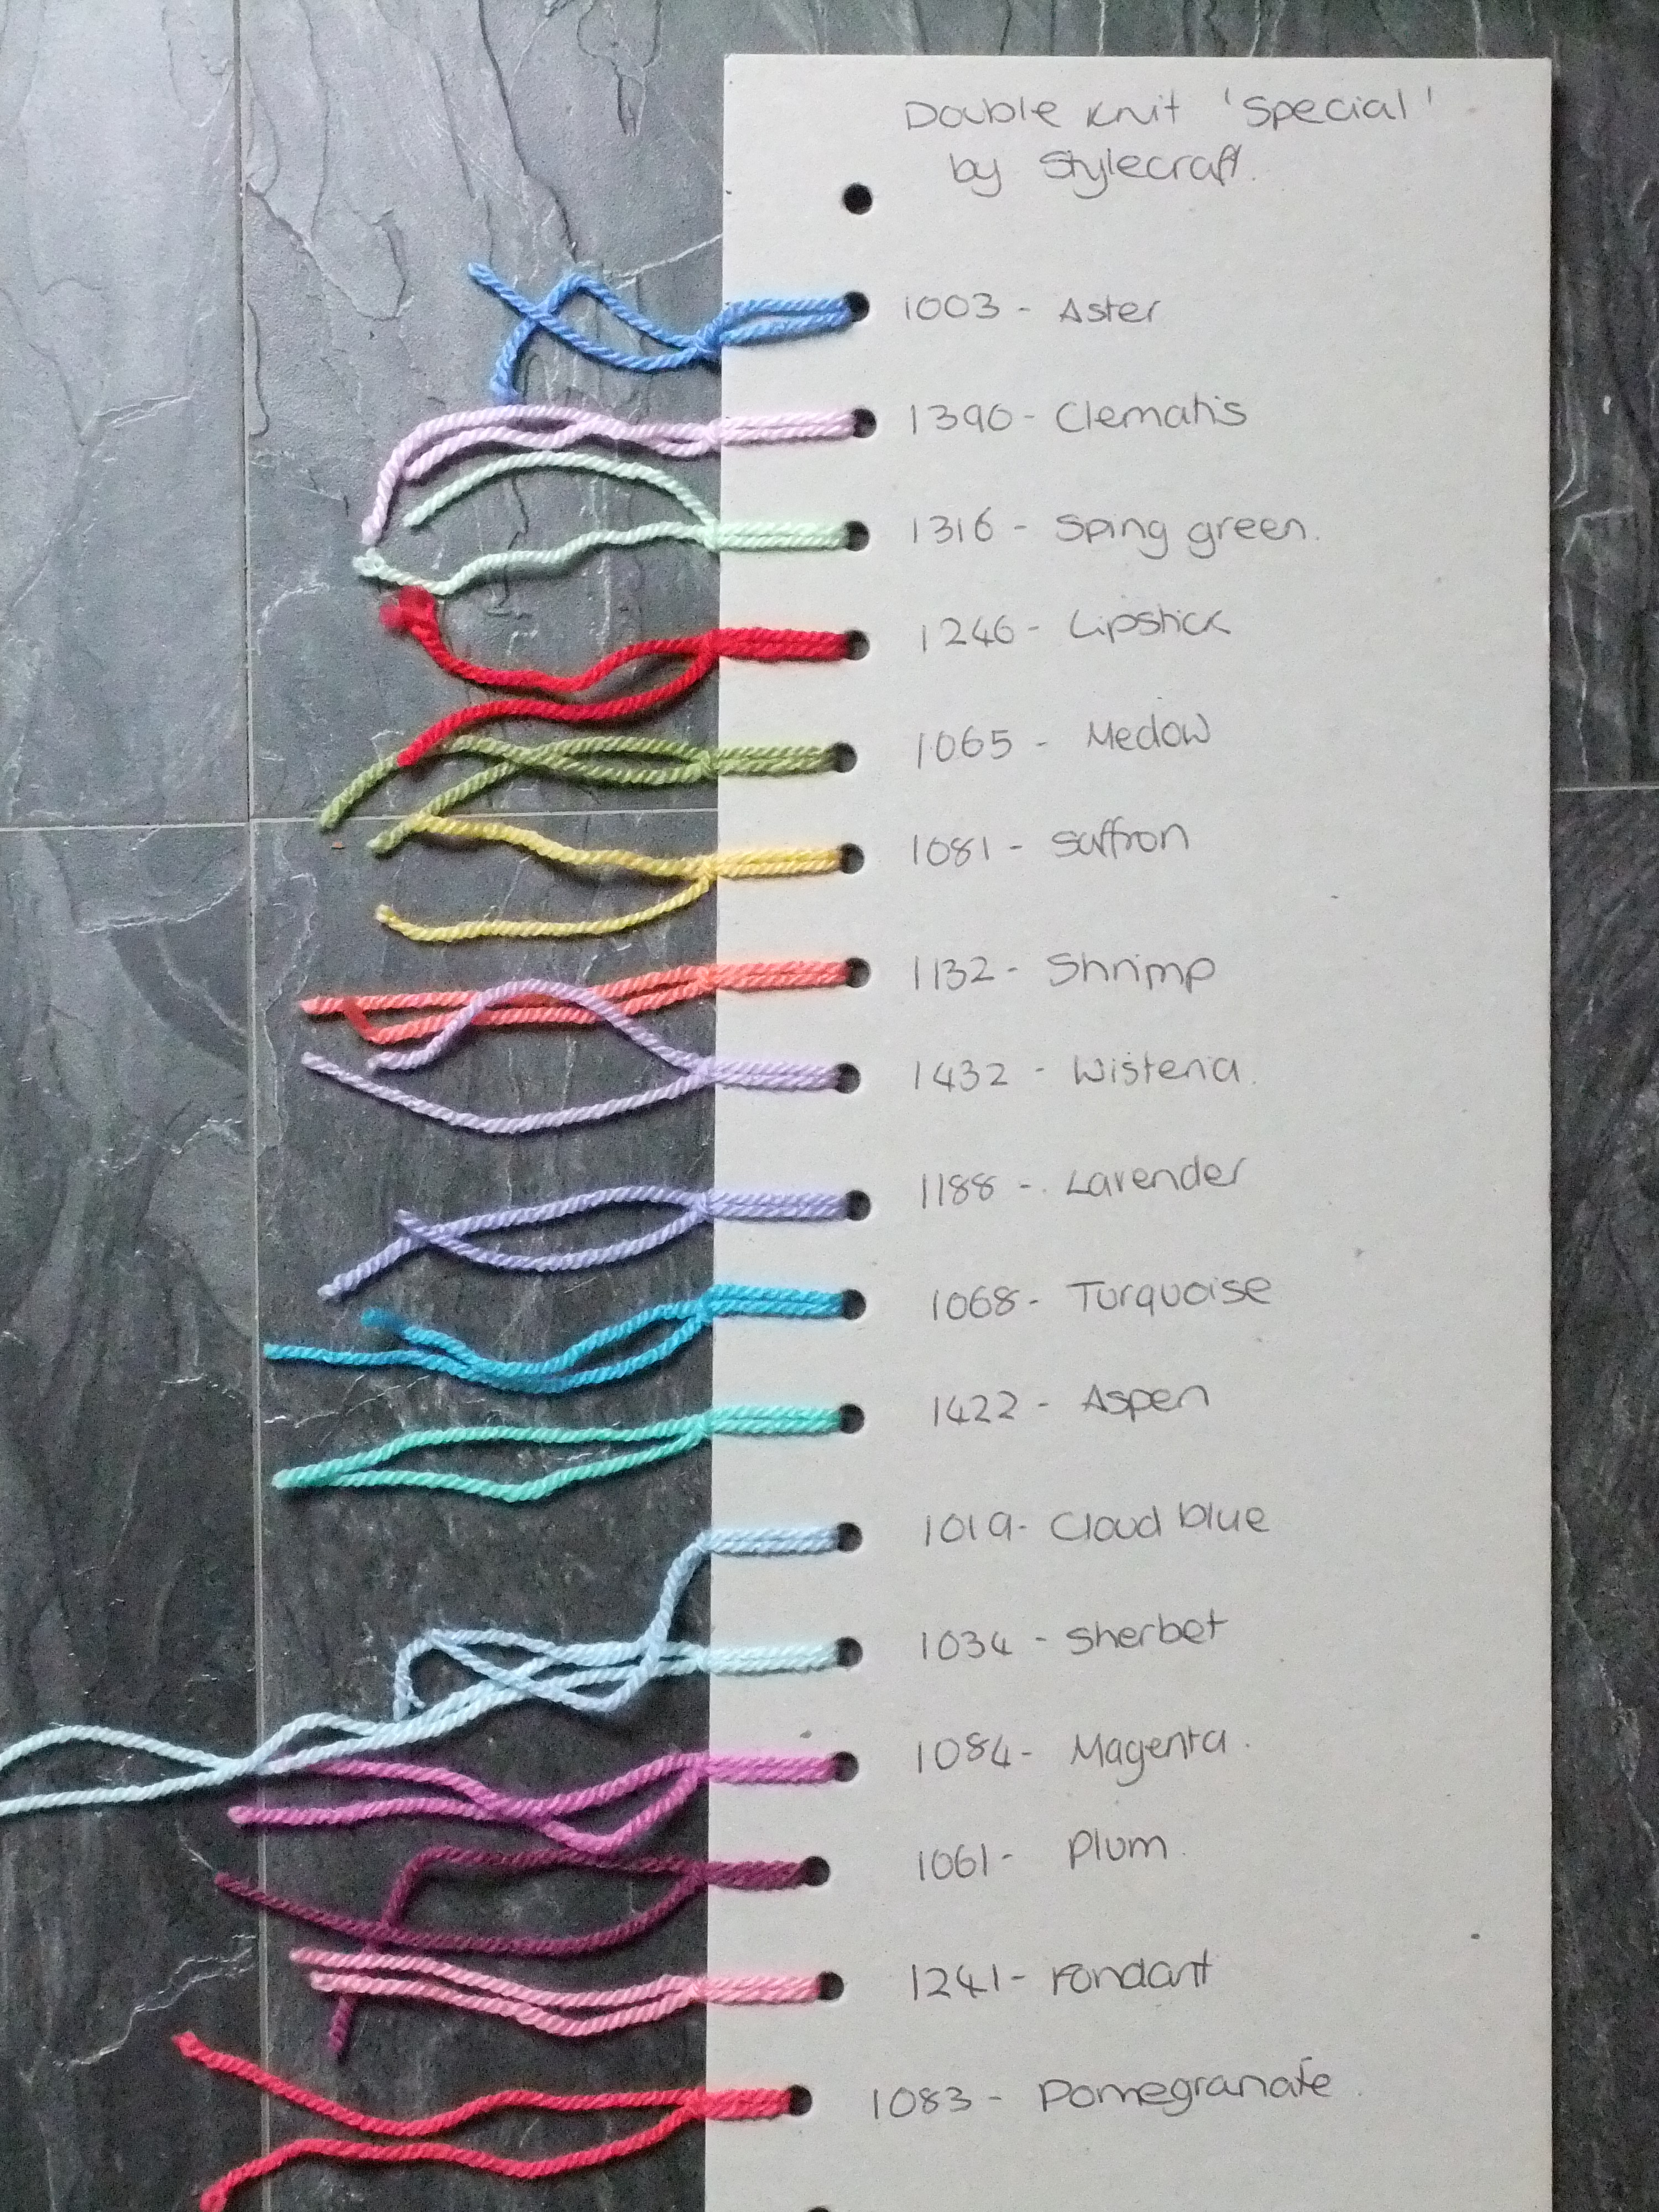 Double knit 'Special'
by Stylecraft.
1003 - Aster
1390 - Clematis
1316 - Sping green.
1246 - Lipstick
1065 - Medow
1081 - Saffron
1132 - Shrimp
1432 - Wisteria.
1188 - Lavender
1068 - Turquoise
1422 - Aspen
1019 - Cloud blue
1034 - Sherbet
1084 - Magenta.
1061 - Plum.
1241 - Fondant
1083 - Pomegranate.